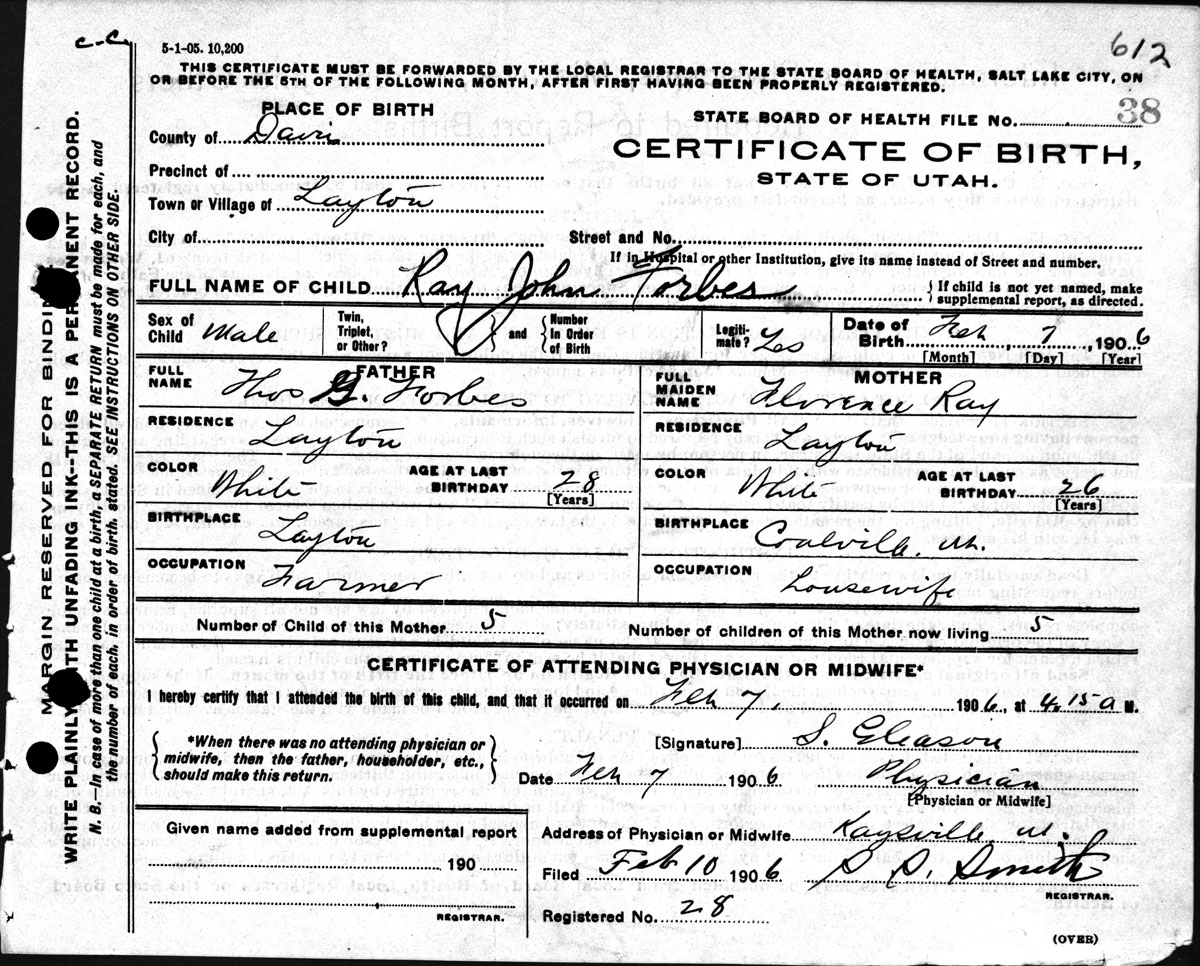 c-c.
612
5-1-05. 10,200
THIS CERTIFICATE MUST BE FORWARDED BY THE LOCAL REGISTRAR TO THE STATE BOARD OF HEALTH, SALT LAKE CITY, ON
OR BEFORE THE 5TH OF THE FOLLOWING MONTH, AFTER FIRST HAVING BEEN PROPERLY REGISTERED.
PLACE OF BIRTH
STATE BOARD OF HEALTH FILE No. 38
County of Davis
CERTIFICATE OF BIRTH,
STATE OF UTAH.
Precinct of
Town or Village of Layton
City of
Street and No.
If in Hospital or other Institution, give its name instead of Street and number.
FULL NAME OF CHILD Ray John Forbes { If child is not yet named, make supplemental report, as directed.
Sex of Child Male
Twin, Triplet, or Other? } and { Number In Order of Birth
Legitimate? Yes
Date of Birth Feb, 7, 1906
[Month] [Day] [Year]
FATHER
FULL NAME Thos G. Forbes
RESIDENCE
Layton
COLOR White
AGE AT LAST BIRTHDAY 28
[Years]
BIRTHPLACE
Layton
OCCUPATION
Farmer
MOTHER
FULL MAIDEN NAME Florence Ray
RESIDENCE
Layton
COLOR White
AGE AT LAST BIRTHDAY 26
[Years]
BIRTHPLACE
Coalville, Ut.
OCCUPATION
Housewife
Number of Child of this Mother 5
Number of children of this Mother now living 5
CERTIFICATE OF ATTENDING PHYSICIAN OR MIDWIFE*
I hereby certify that I attended the birth of this child, and that it occurred on Feb 7, 1906, at 4.15 a M.
{ *When there was no attending physician or
midwife, then the father, householder, etc.,
should make this return. }
[Signature] S. Gleason
Date Feb 7 1906 Physician
[Physician or Midwife]
Given name added from supplemental report
190
REGISTRAR.
Address of Physician or Midwife Kaysville Ut.
Filed Feb 10 1906 Smith
REGISTRAR.
Registered No. 28
(OVER)
MARGIN RESERVED FOR BINDING
WRITE PLAINLY WITH UNFADING INK--THIS IS A PERMANENT RECORD.
N. B.—In case of more than one child at a birth, a SEPARATE RETURN must be made for each, and
the number of each, in order of birth, stated. SEE INSTRUCTIONS ON OTHER SIDE.